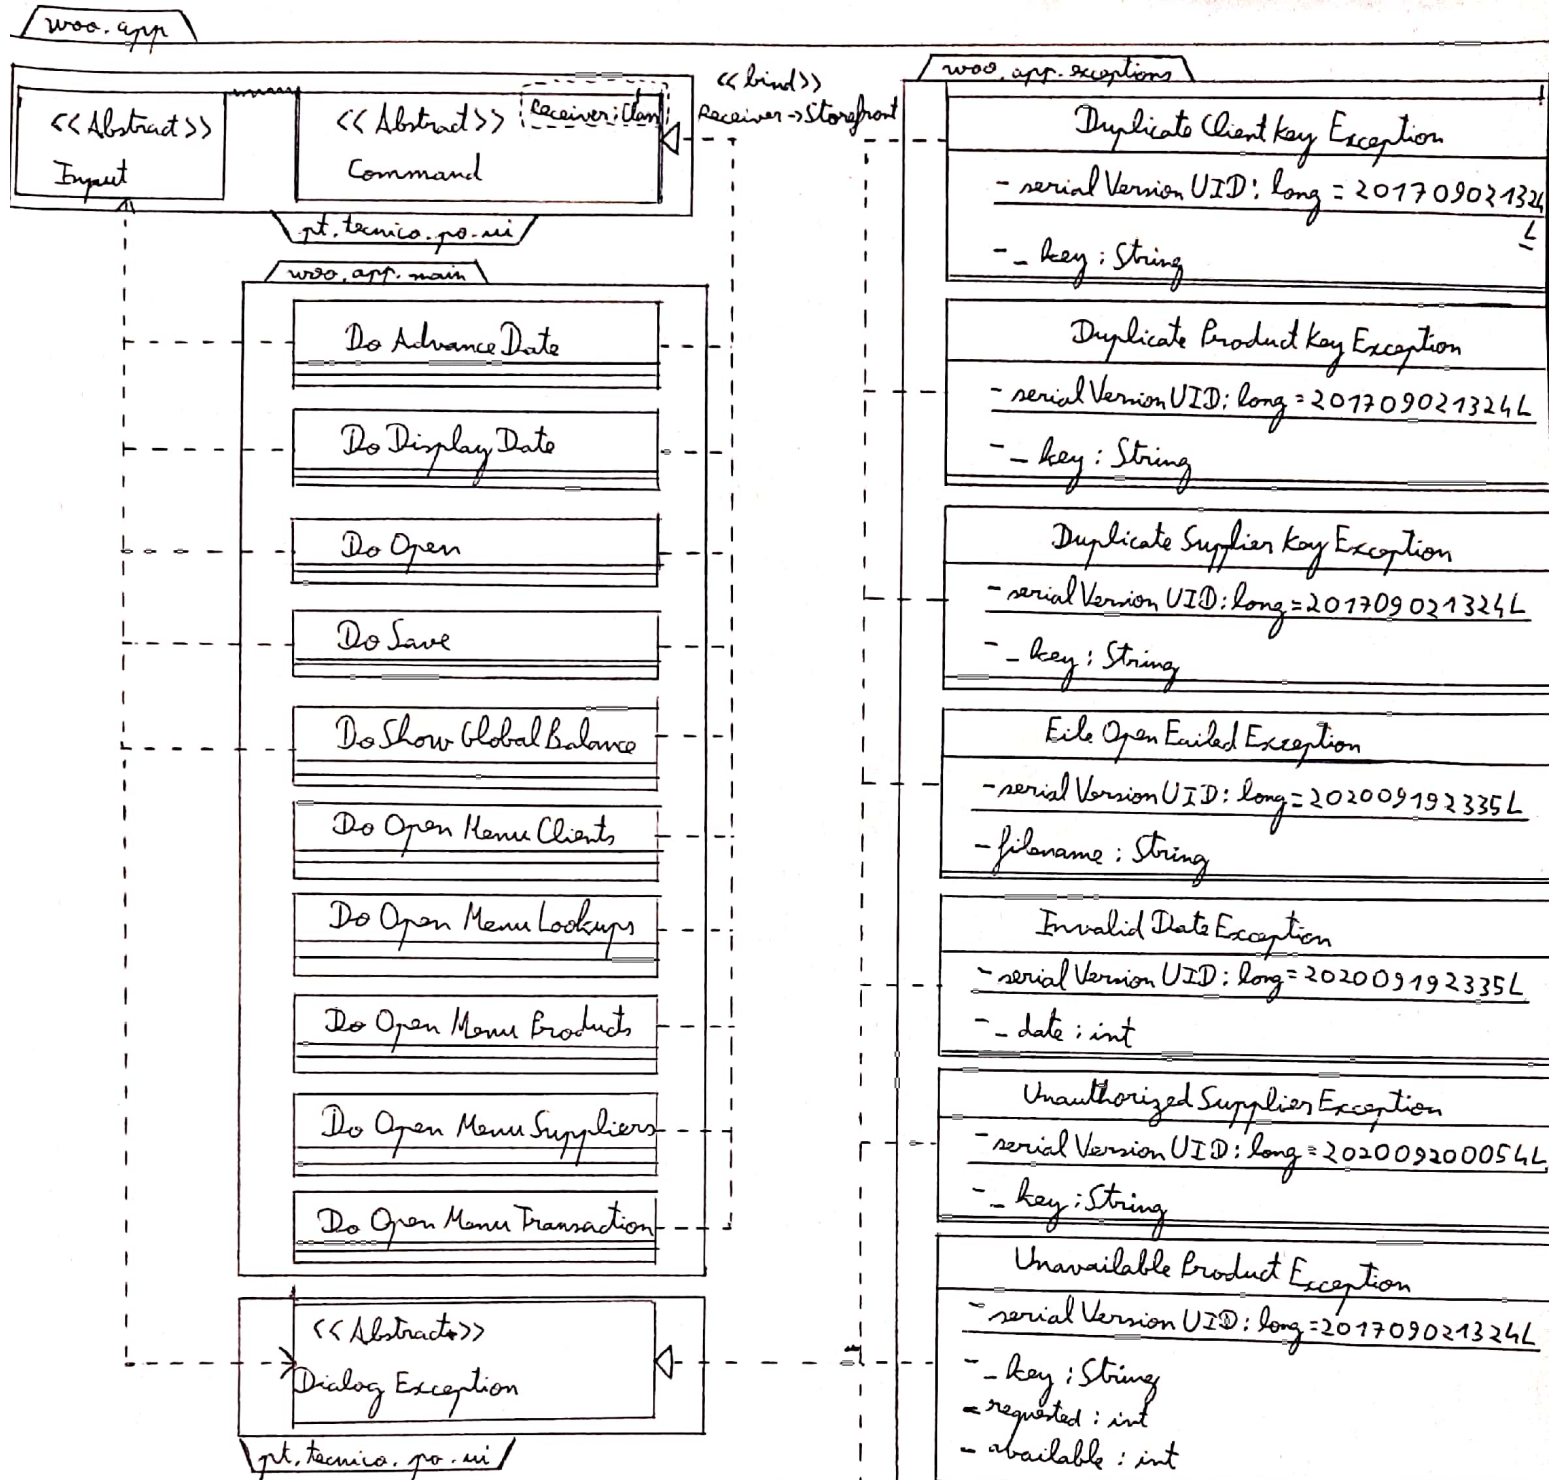 woo.app
<<Abstract>>
Input
<<Abstract>>
Command
Receiver:Class
<<bind>>
Receiver->Storefront
pt.tecnico.po.ui
woo.app.main
Do Advance Date
Do Display Date
Do Open
Do Save
Do Show Global Balance
Do Open Menu Clients
Do Open Menu Lookups
Do Open Menu Products
Do Open Menu Suppliers
Do Open Menu Transaction
<<Abstract>>
Dialog Exception
pt.tecnico.po.ui
woo.app.exceptions
Duplicate Client Key Exception
- serial Version UID: long = 201709021324
L
- _ key : String
Duplicate Product Key Exception
- serial Version UID: long = 201709021324L
- _ key : String
Duplicate Supplier Key Exception
- serial Version UID: long = 201709021324L
- _ key : String
File Open Failed Exception
- serial Version UID: long = 202009192335L
- filename : String
Invalid Date Exception
- serial Version UID: long = 202009192335L
- _ date : int
Unauthorized Supplier Exception
- serial Version UID: long = 202009200054L
- _ key : String
Unavailable Product Exception
- serial Version UID: long = 201709021324L
- _ key : String
- requested : int
- available : int